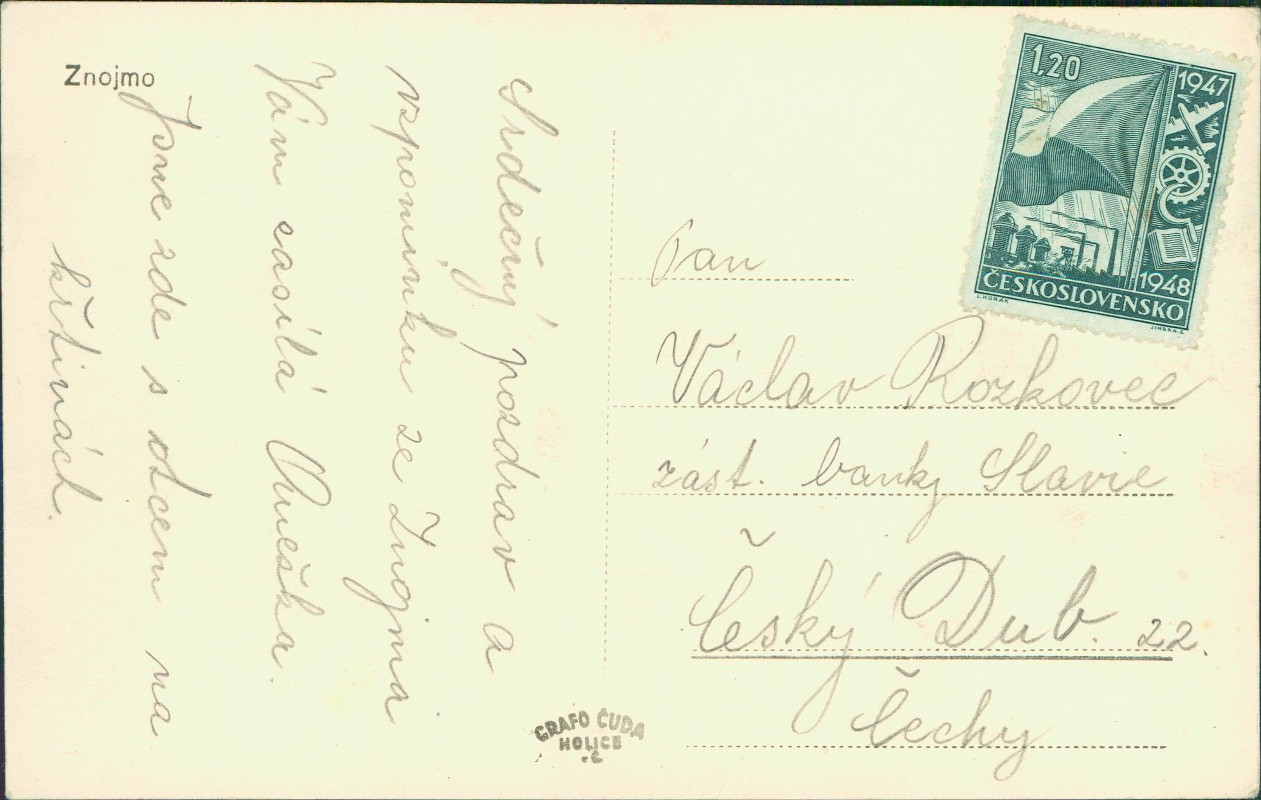 Znojmo
Srdečný pozdrav a
vzpomínku ze Znojma
Vám zasílá Anežka.
Jsme zde s otcem na
křtinách.
1,20
1947
1948
ČESKOSLOVENSKO
L.HORÁK
JINDRA.S.
Pan
Václav Rozkovec
zást. banky Slavie
Český Dub. 22.
Čechy
GRAFO ČUDA
HOLICE